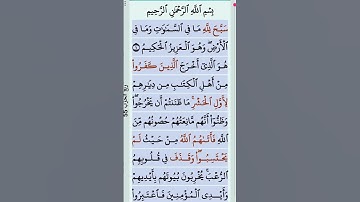 بِسْمِ ٱللَّهِ ٱلرَّحْمَٰنِ ٱلرَّحِيمِ
سَبَّحَ لِلَّهِ مَا فِى ٱلسَّمَٰوَٰتِ وَمَا فِى
ٱلْأَرْضِ ۖ وَهُوَ ٱلْعَزِيزُ ٱلْحَكِيمُ ١
هُوَ ٱلَّذِىٓ أَخْرَجَ ٱلَّذِينَ كَفَرُوا۟
مِنْ أَهْلِ ٱلْكِتَٰبِ مِن دِيَٰرِهِمْ
لِأَوَّلِ ٱلْحَشْرِ ۚ مَا ظَنَنتُمْ أَن يَخْرُجُوا۟ ۖ
وَظَنُّوٓا۟ أَنَّهُم مَّانِعَتُهُمْ حُصُونُهُم مِّنَ
ٱللَّهِ فَأَتَىٰهُمُ ٱللَّهُ مِنْ حَيْثُ لَمْ
يَحْتَسِبُوا۟ ۖ وَقَذَفَ فِى قُلُوبِهِمُ
ٱلرُّعْبَ ۚ يُخْرِبُونَ بُيُوتَهُم بِأَيْدِيهِمْ
وَأَيْدِى ٱلْمُؤْمِنِينَ فَٱعْتَبِرُوا۟